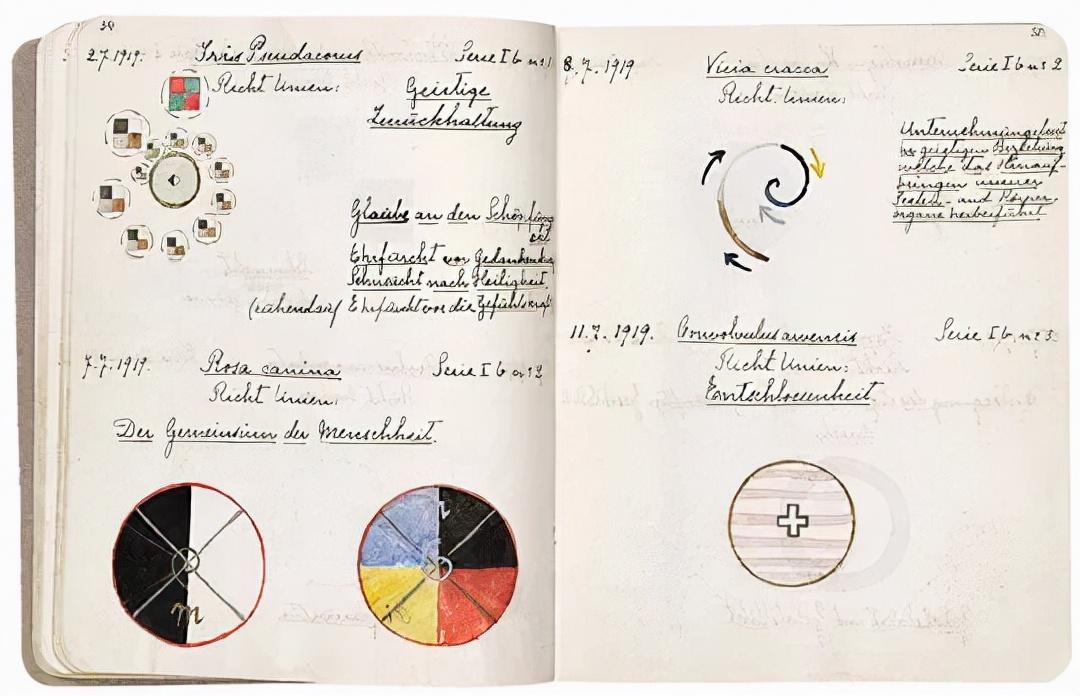 2.7.1919. Iris Pseudacorus Serie I b nr 1
Richtlinien:
Geistige
Zurückhaltung
Glaube an den
Ehrfurcht vor
Sehnsucht nach Heiligkeit.
Ehrfurcht vor die
7.7.1919. Rosa canina Serie I b
Richtlinien:
Der Gemeinsinn der Menschheit.
m
8.7.1919 Vicia cracca Serie I b nr 2
Richtlinien:
der geistigen
welche das Hinauf-
bringen unserer
Seelen- und Körper-
organe herbeiführt
11.7.1919. Convolvulus arvensis Serie I b nr 3
Richtlinien:
Entschlossenheit